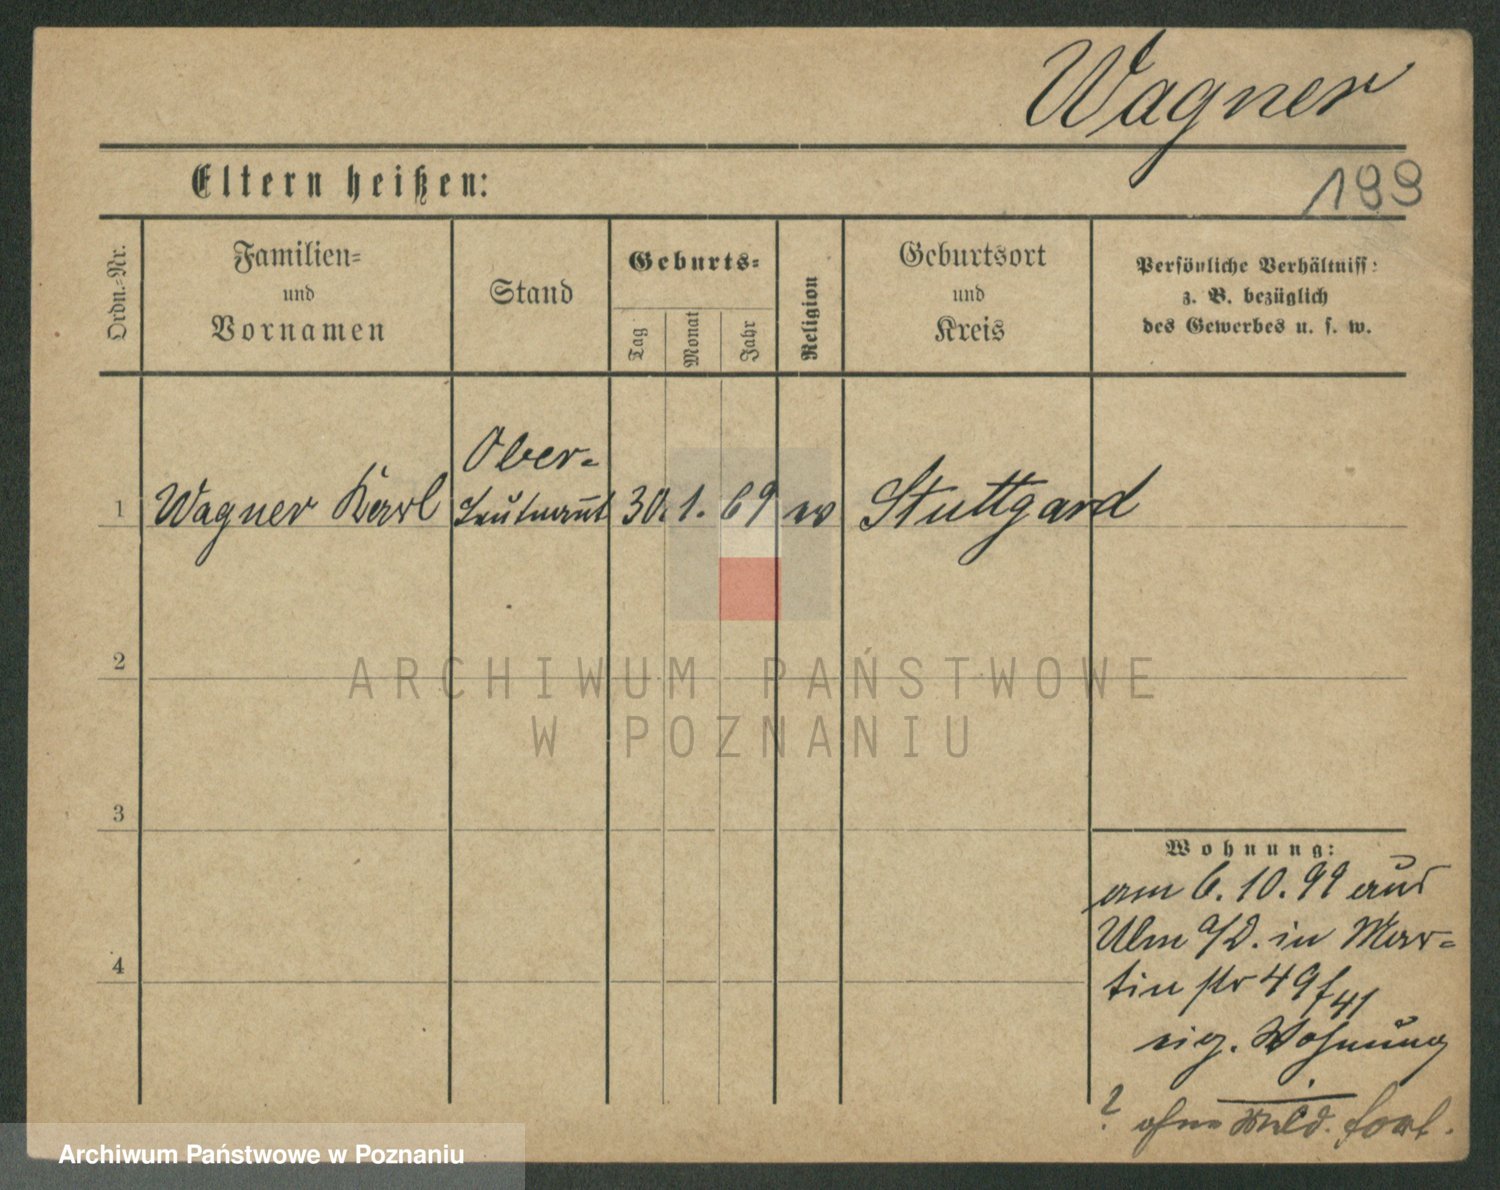 Wagner
199
Eltern heißen:
Ordn.-Nr.
Familien-
und
Vornamen
Stand
Geburts-
Tag
Monat
Jahr
Religion
Geburtsort
und
Kreis
Persönliche Verhältniss:
z. B. bezüglich
des Gewerbes u. s. w.
Ober-
1 Wagner Karl Leutnant 30. 1. 69 ev Stuttgard
2
ARCHIWUM PAŃSTWOWE
W POZNANIU
3
Wohnung:
am 6. 10. 99 aus
Ulm a/D. in Mar-
4
tin str 49
eig. Wohnung
? ohne Meld. fort.
Archiwum Państwowe w Poznaniu